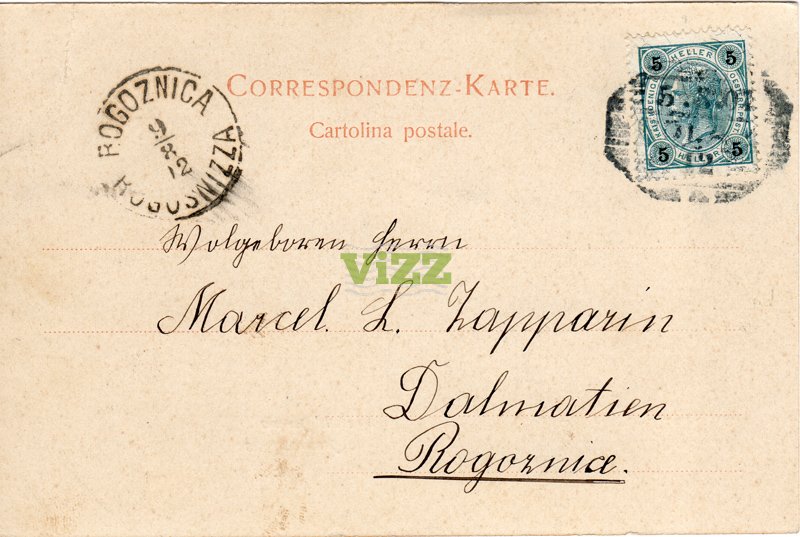 CORRESPONDENZ-KARTE.
Cartolina postale.
ROGOZNICA
9/8
12
ROGOSNIZZA
5 HELLER 5
5 HELLER 5
Wolgeboren Herrn
ViZZ
Marcel. L. Zapparin
Dalmatien
Rogoznice.